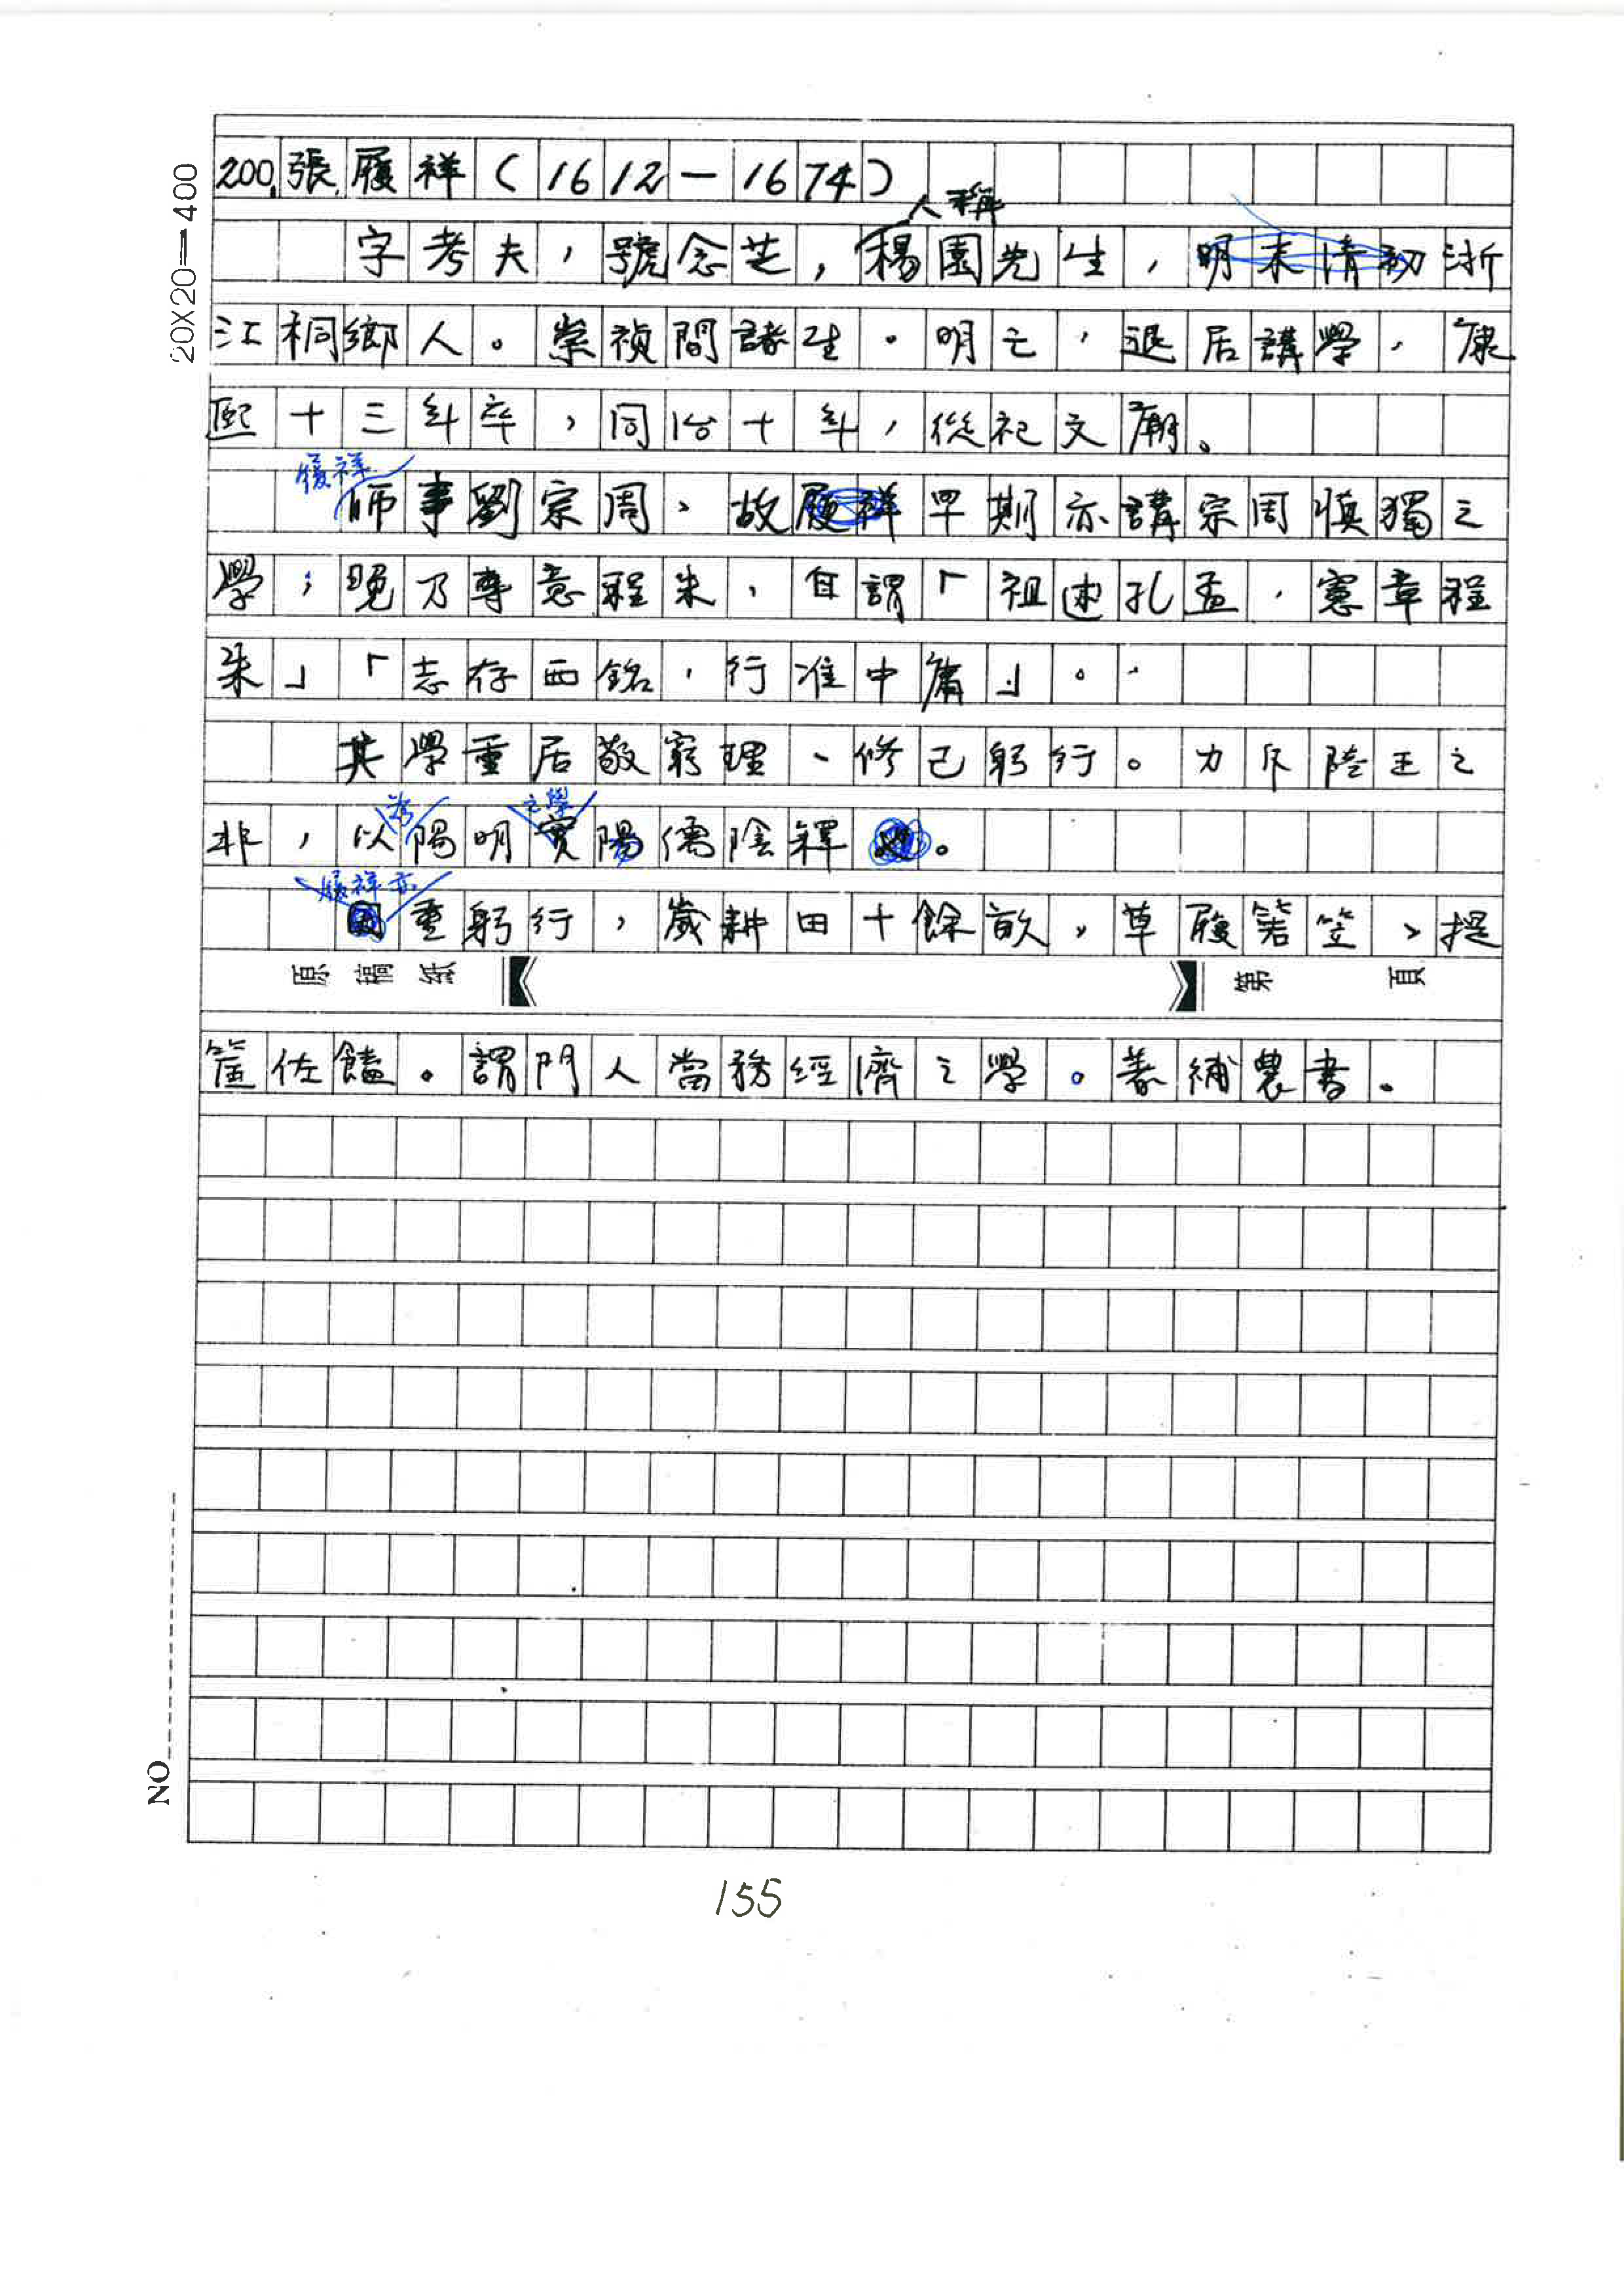 20X20=400
200.張履祥(1612-1674)
人稱
字考夫,號念芝,楊園先生,明末清初浙
江桐鄉人。崇禎間諸生。明亡,退居講學,康
熙十三年卒,同治十年,從祀文廟。
履祥
師事劉宗周、故履祥早期亦講宗周慎獨之
學;晚乃專意程朱,自謂「祖述孔孟,憲章程
朱」「志存西銘,行准中庸」。
其學重居敬窮理、修己躬行。力斥陸王之
為 之學
非,以陽明實陽儒陰釋。
履祥亦
重躬行,歲耕田十餘畝,草履箬笠、提
原稿紙 第 頁
筐佐饁。謂門人當務經濟之學。著補農書。
NO
155